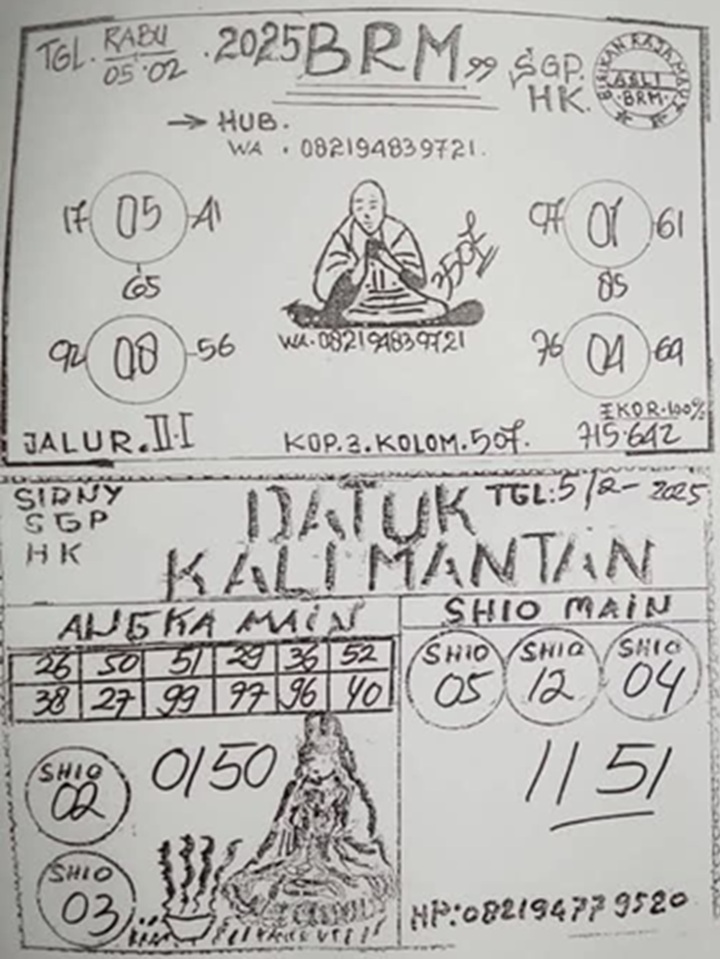 TGL. RABU 05·02 .2025 BRM 99 SGP. HK.
BIRIKAN RAJA MAYA
ASLI
·BRM·
→ HUB.
WA . 082194839721.
17 05 41
65
97 01 61
85
350f
92 08 56
WA.082194839721
76 04 69
JALUR.II.I
KOP.3.KOLOM.50f.
EKOR.100%
715.642
SIDNY
SGP
HK
DATUK
TGL:5/2-2025
KALIMANTAN
ANGKA MAIN
26 50 51 29 36 52
38 27 99 97 96 40
SHIO MAIN
SHIO 05
SHIO 12
SHIO 04
SHIO 02
0150
1151
SHIO 03
HP:082194779520